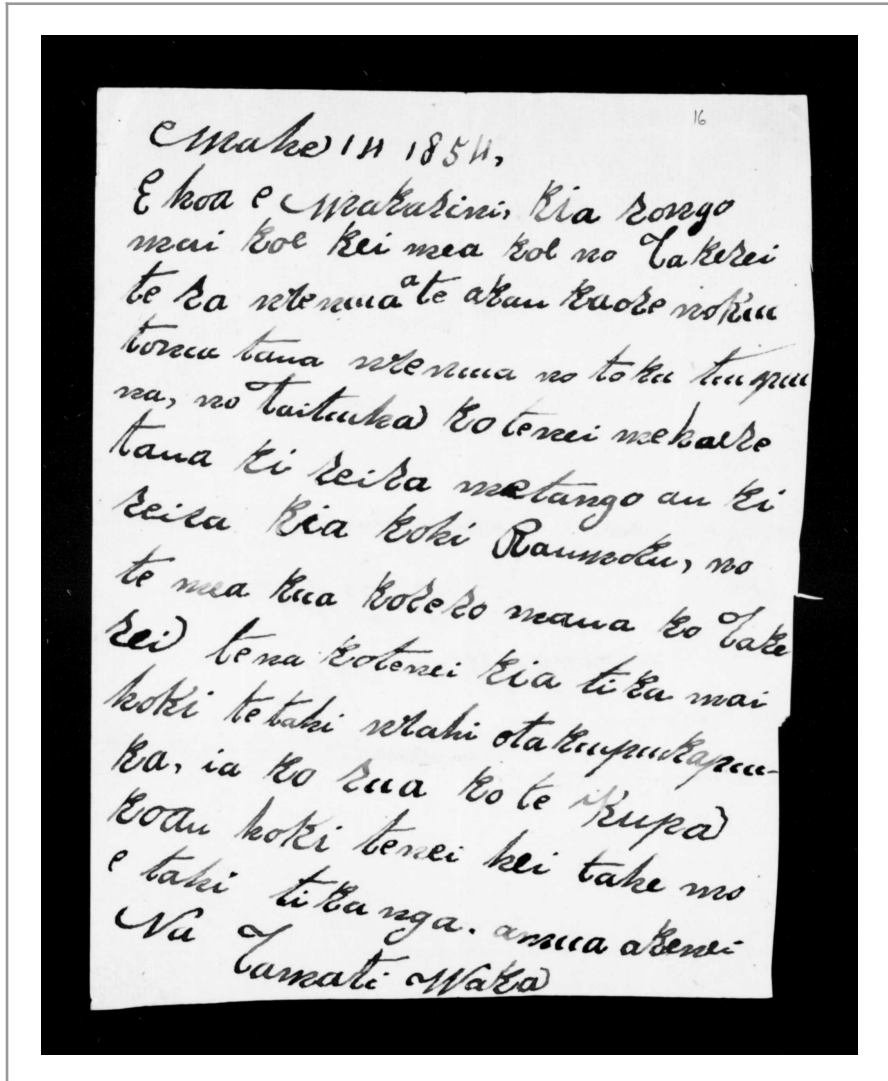 16
Mahe 14 1854,
E hoa e Makarini, kia rongo
mai koe kei mea koe no Takerei
te ra wlenuua a te arau kaore nokuu
tonu taua wlenuua no toku tuupuu
na, no Taituuha ko tenei mehaere
taua ki reira metango au ki
reira kia koki Raumoku, no
te mea kua korero maua ko Take
rei tena kotenei kia tika mai
hoki tetahi wlahi otakuupuukapuu-
ka, ia ko rua ko te Kupa
koau hoki tenei hei take mo
e tahi tikanga. amua akenei
Na
Tamati Waka